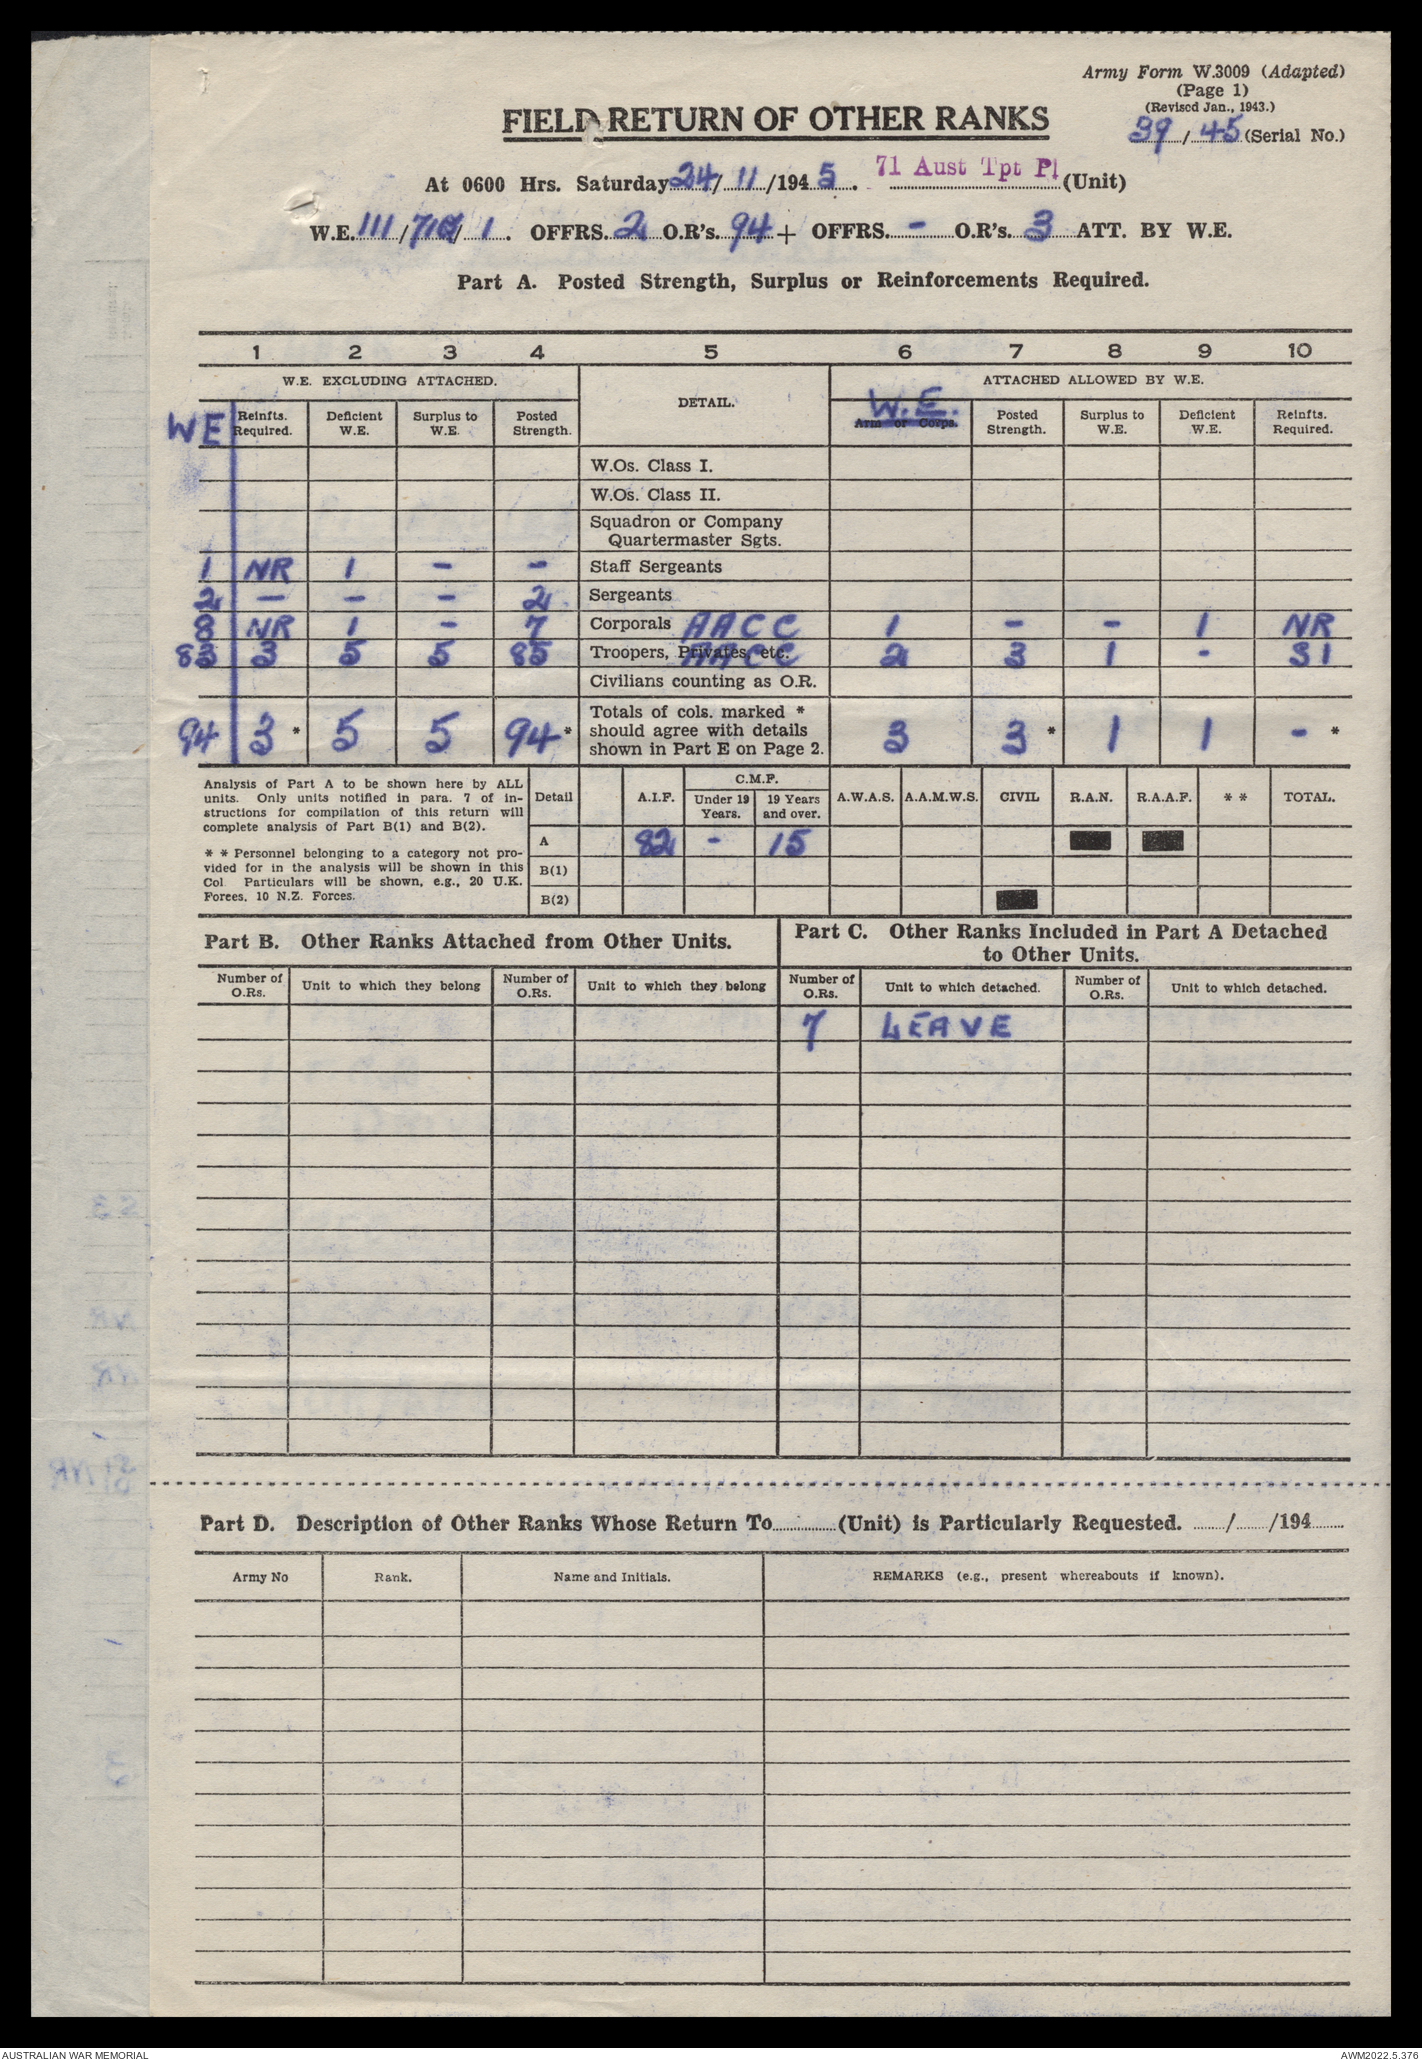 Army Form W.3009 (Adapted)
(Page 1)
(Revised Jan., 1943.)
FIELD RETURN OF OTHER RANKS
39 / 45 (Serial No.)
At 0600 Hrs. Saturday 24/ 11 /194 5. 71 Aust Tpt Pl (Unit)
W.E. 111 / / 1 . OFFRS. 2 O.R's. 94 + OFFRS. - O.R's. 3 ATT. BY W.E.
Part A. Posted Strength, Surplus or Reinforcements Required.
1 2 3 4 5 6 7 8 9 10
W.E. EXCLUDING ATTACHED. DETAIL. ATTACHED ALLOWED BY W.E.
WE Reinfts. Required. Deficient W.E. Surplus to W.E. Posted Strength. W.E. Arm or Corps. Posted Strength. Surplus to W.E. Deficient W.E. Reinfts. Required.
W.Os. Class I.
W.Os. Class II.
Squadron or Company
Quartermaster Sgts.
1 NR 1 - - Staff Sergeants
2 - - - 2 Sergeants
8 NR 1 - 7 Corporals AACC 1 - - 1 NR
83 3 5 5 85 Troopers, Privates, etc. AACC 2 3 1 - S1
Civilians counting as O.R.
94 3 * 5 5 94 * Totals of cols. marked * should agree with details shown in Part E on Page 2. 3 3 * 1 1 - *
Analysis of Part A to be shown here by ALL
units. Only units notified in para. 7 of in-
structions for compilation of this return will
complete analysis of Part B(1) and B(2).
* * Personnel belonging to a category not pro-
vided for in the analysis will be shown in this
Col. Particulars will be shown, e.g., 20 U.K.
Forces, 10 N.Z. Forces.
Detail A.I.F. C.M.F. Under 19 Years. 19 Years and over. A.W.A.S. A.A.M.W.S. CIVIL R.A.N. R.A.A.F. * * TOTAL.
A 82 - 15
B(1)
B(2)
Part B. Other Ranks Attached from Other Units.
Part C. Other Ranks Included in Part A Detached
to Other Units.
Number of O.Rs. Unit to which they belong Number of O.Rs. Unit to which they belong Number of O.Rs. Unit to which detached. Number of O.Rs. Unit to which detached.
7 LEAVE
Part D. Description of Other Ranks Whose Return To (Unit) is Particularly Requested. / /194
Army No Rank. Name and Initials. REMARKS (e.g., present whereabouts if known).
AUSTRALIAN WAR MEMORIAL AWM2022.5.376